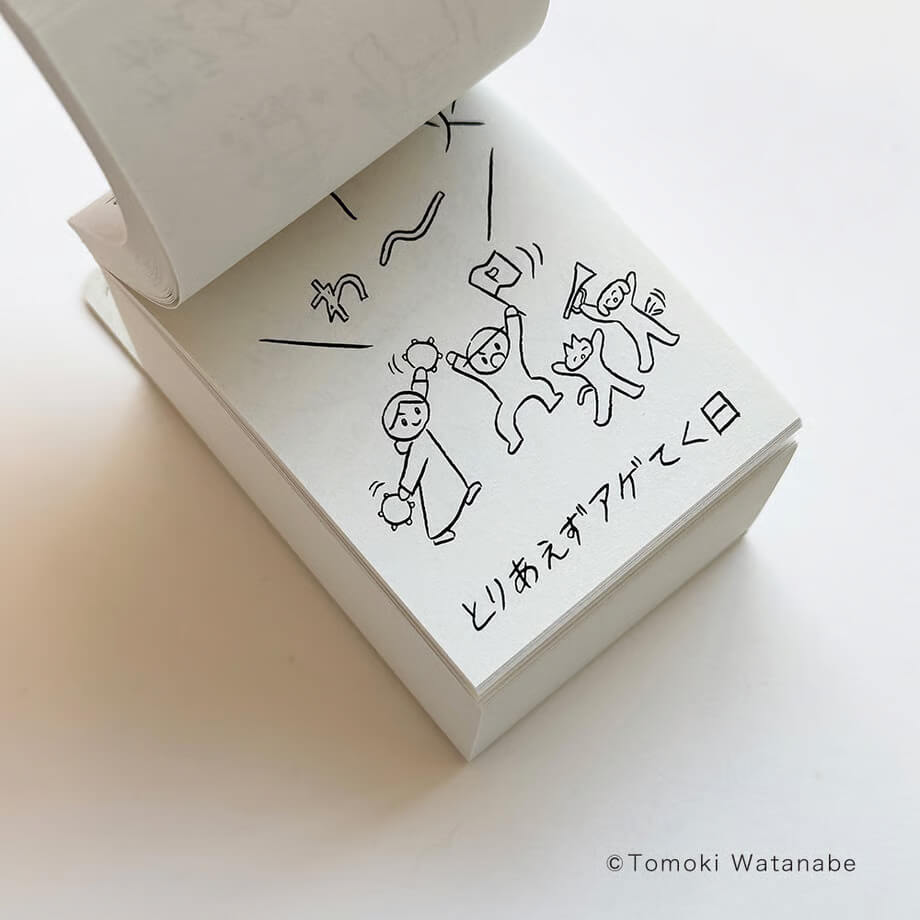 わ〜
P
とりあえずアゲてく日
©Tomoki Watanabe